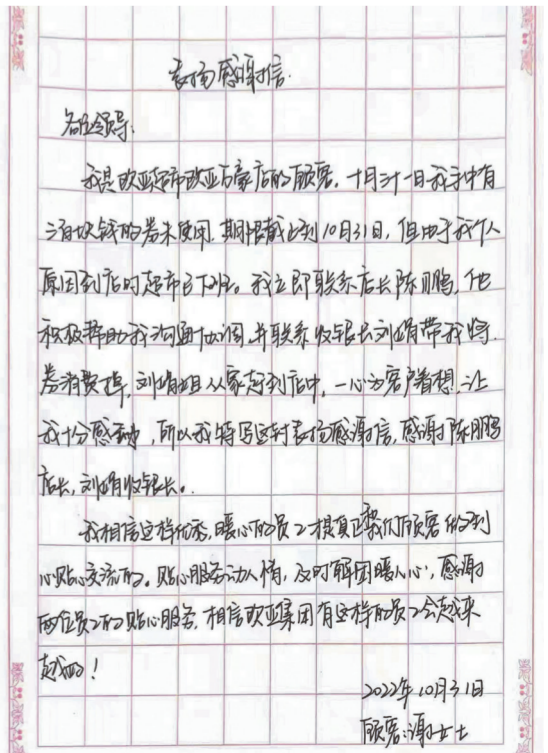 表扬感谢信
各位领导:
我是欧亚超市欧亚万家店的顾客,十月三十一日我手中有
三百块钱的券未使用,期限截止到10月31日,但由于我个人
原因到店时超市已下班。我立即联系店长陈鹏,他
积极帮助我沟通协调,并联系收银长刘娟带我将
券消费掉,刘娟姐从家赶到店中,一心为客户着想,让
我十分感动,所以我特写这封表扬感谢信,感谢陈鹏
店长,刘娟收银长。
我相信这样优秀,暖心的员工才是真正和顾客得到
心贴心交流的。贴心服务动人情,及时解困暖人心,感谢
两位员工的贴心服务,相信欧亚集团有这样的员工会越来
越好!
2022年10月31日
顾客:谢女士